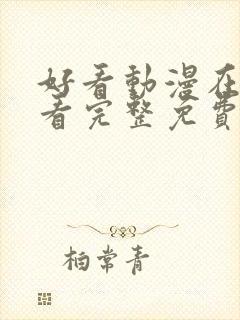 好看動漫在
看完整免費
柏常青